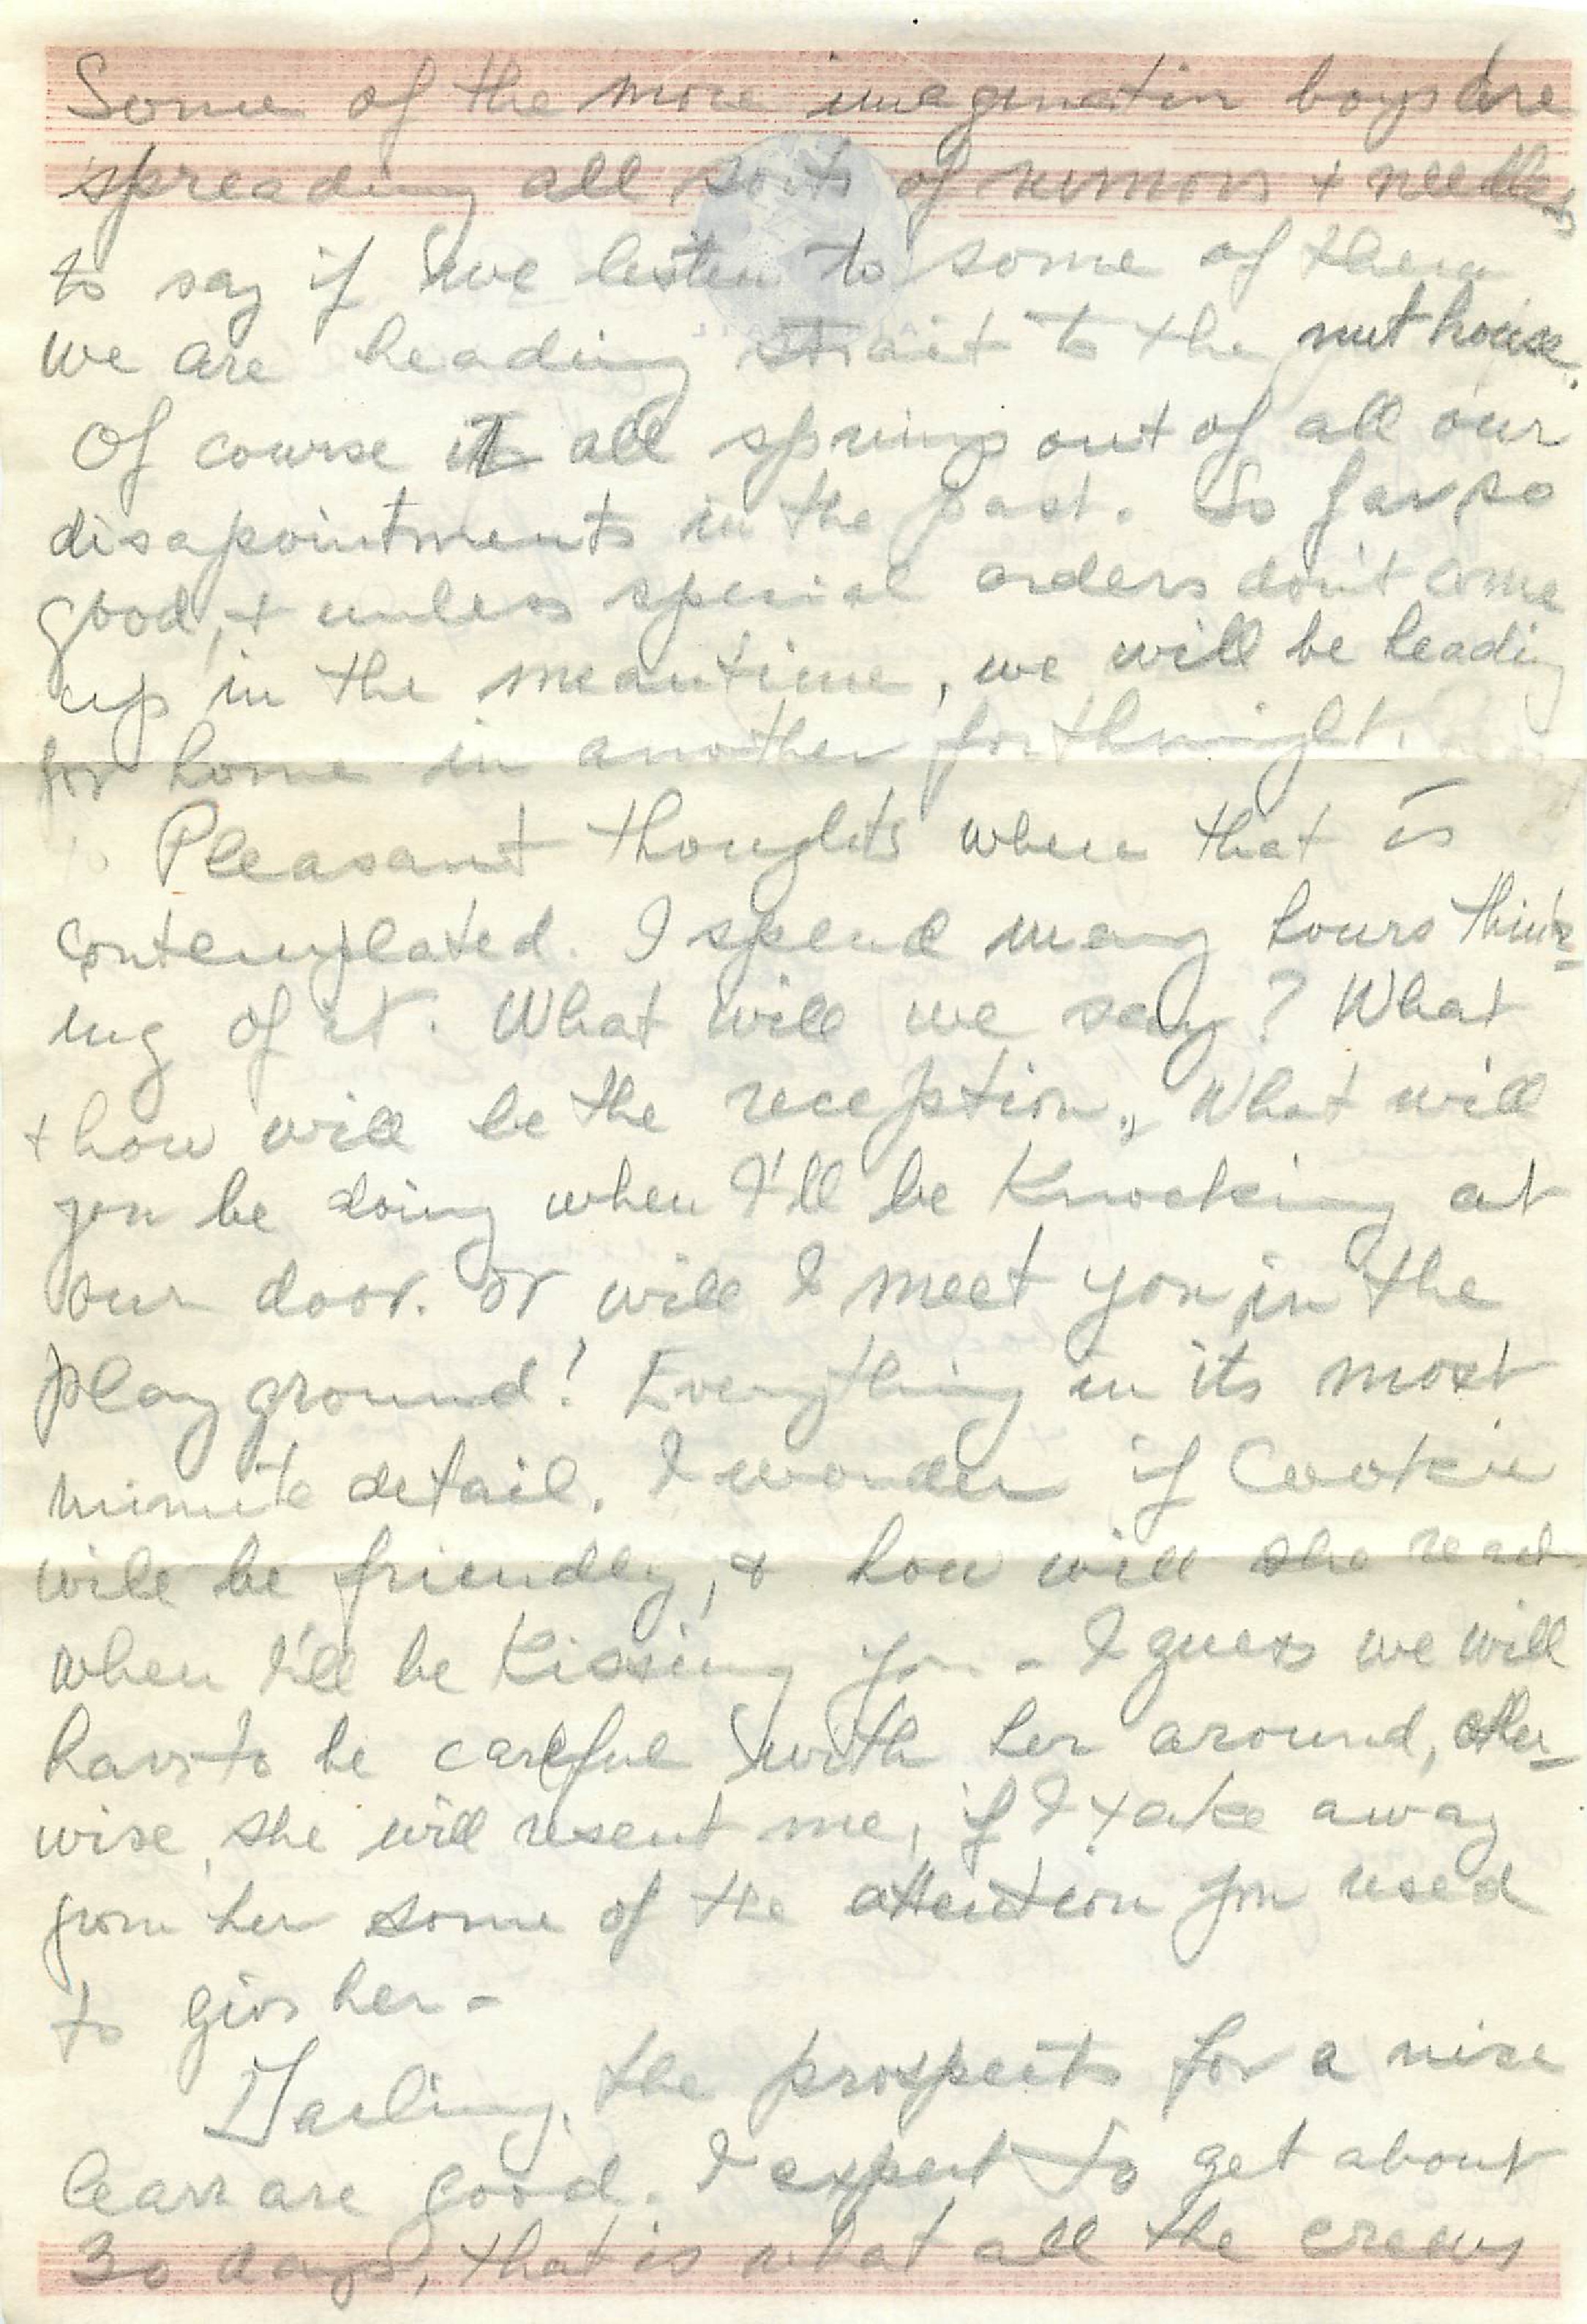 Some of the more imaginativ boys are
spreading all sorts of rumors + needles
to say if we listen to some of them
we are heading strait to the nut house.
Of course it all springs out of all our
disapointments in the past. So far, so
good, + unless special orders don't come
up in the meantime, we will be heading
for home in another forthnight.
Pleasant thoughts when that is
contemplated. I spend many hours think-
ing of it. What will we say? What
+ how will be the reception. What will
you be doing when I'll be Knocking at
our door. or will I meet you in the
play ground! Everything in its most
minute detail. I wonder if Cookie
will be friendly, & how will she react
when I'll be Kissing you - I guess we will
have to be careful with her around, other-
wise, she will resent me, if I take away
from her some of the attention you used
to give her -
Darling, the prospects for a nice
leave are good. I expect to get about
30 days, that is what all the crews